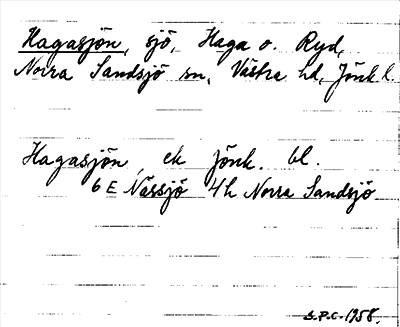 Hagasjön, sjö, Haga o. Ryd,
Norra Sandsjö sn, Västra hd, Jönk l.
Hagasjön ek Jönk. bl.
6 E Nässjö 4h Norra Sandsjö
S.P.C. 1958.